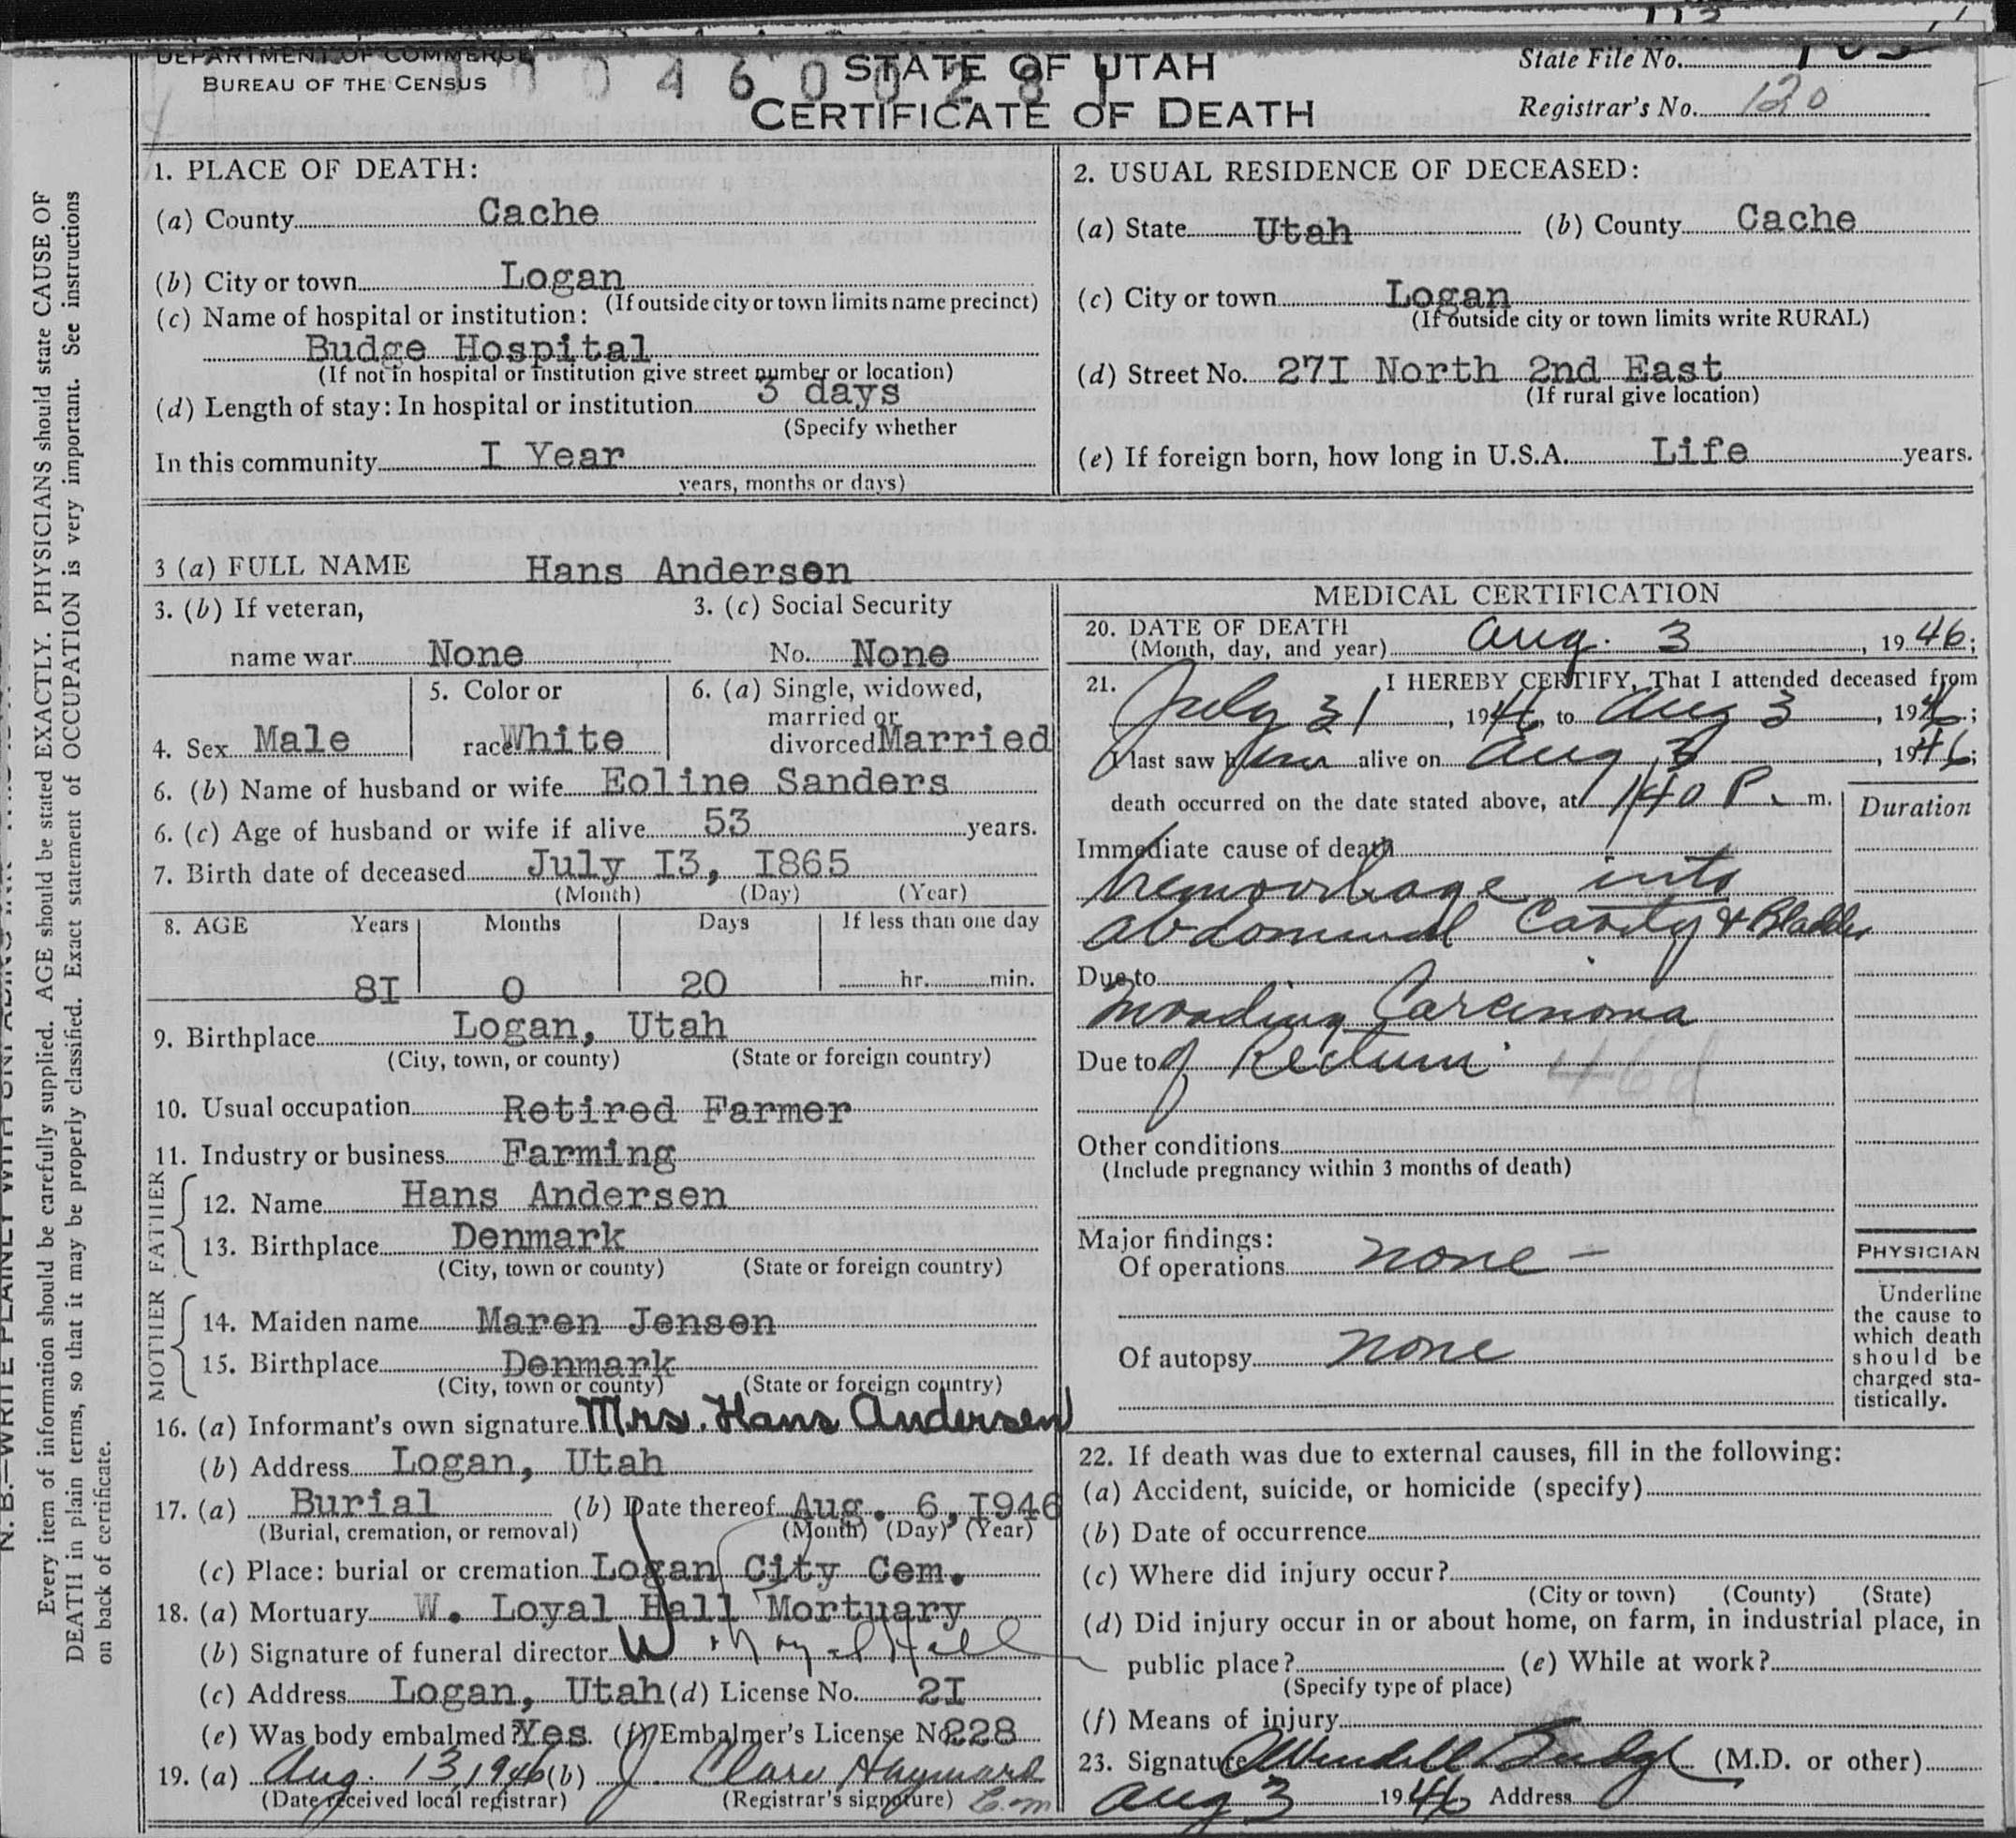 DEPARTMENT OF COMMERCE
BUREAU OF THE CENSUS
STATE OF UTAH
CERTIFICATE OF DEATH
State File No.
Registrar's No. 120
1. PLACE OF DEATH:
(a) County Cache
(b) City or town Logan
(If outside city or town limits name precinct)
(c) Name of hospital or institution:
Budge Hospital
(If not in hospital or institution give street number or location)
(d) Length of stay: In hospital or institution 3 days
(Specify whether
In this community I Year
years, months or days)
2. USUAL RESIDENCE OF DECEASED:
(a) State Utah (b) County Cache
(c) City or town Logan
(If outside city or town limits write RURAL)
(d) Street No. 27I North 2nd East
(If rural give location)
(e) If foreign born, how long in U.S.A. Life years.
3 (a) FULL NAME Hans Andersen
3. (b) If veteran, 3. (c) Social Security
name war None No. None
4. Sex Male
5. Color or
race White
6. (a) Single, widowed,
married or
divorced Married
6. (b) Name of husband or wife Eoline Sanders
6. (c) Age of husband or wife if alive 53 years.
7. Birth date of deceased July I3, I865
(Month) (Day) (Year)
8. AGE Years Months Days If less than one day
8I 0 20 hr. min.
9. Birthplace Logan, Utah
(City, town, or county) (State or foreign country)
10. Usual occupation Retired Farmer
11. Industry or business Farming
FATHER
12. Name Hans Andersen
13. Birthplace Denmark
(City, town or county) (State or foreign country)
MOTHER
14. Maiden name Maren Jensen
15. Birthplace Denmark
(City, town or county) (State or foreign country)
16. (a) Informant's own signature Mrs. Hans Andersen
(b) Address Logan, Utah
17. (a) Burial (b) Date thereof Aug. 6, I946
(Burial, cremation, or removal) (Month) (Day) (Year)
(c) Place: burial or cremation Logan City Cem.
18. (a) Mortuary W. Loyal Hall Mortuary
(b) Signature of funeral director W. Loyal Hall
(c) Address Logan, Utah (d) License No. 2I
(e) Was body embalmed? Yes. (f) Embalmer's License No. 228
19. (a) Aug. 13, 1946 (b) J. Clare Hayward
(Date received local registrar) (Registrar's signature)
MEDICAL CERTIFICATION
20. DATE OF DEATH
(Month, day, and year) Aug. 3, 1946;
21. I HEREBY CERTIFY, That I attended deceased from
July 31, 1946, to Aug 3, 1946;
I last saw him alive on Aug 3, 1946;
death occurred on the date stated above, at 1:40 P. m.
Duration
Immediate cause of death
hemorrhage into
abdominal Cavity & Bladder
Due to
Invading Carcinoma
Due to of Rectum
Other conditions
(Include pregnancy within 3 months of death)
Major findings:
Of operations none -
Of autopsy none
PHYSICIAN
Underline
the cause to
which death
should be
charged sta-
tistically.
22. If death was due to external causes, fill in the following:
(a) Accident, suicide, or homicide (specify)
(b) Date of occurrence
(c) Where did injury occur?
(City or town) (County) (State)
(d) Did injury occur in or about home, on farm, in industrial place, in
public place? (e) While at work?
(Specify type of place)
(f) Means of injury
23. Signature Wendell Budge (M.D. or other)
Aug 3 1946 Address
N. B.—WRITE PLAINLY WITH UNFADING INK
Every item of information should be carefully supplied. AGE should be stated EXACTLY. PHYSICIANS should state CAUSE OF
DEATH in plain terms, so that it may be properly classified. Exact statement of OCCUPATION is very important. See instructions
on back of certificate.